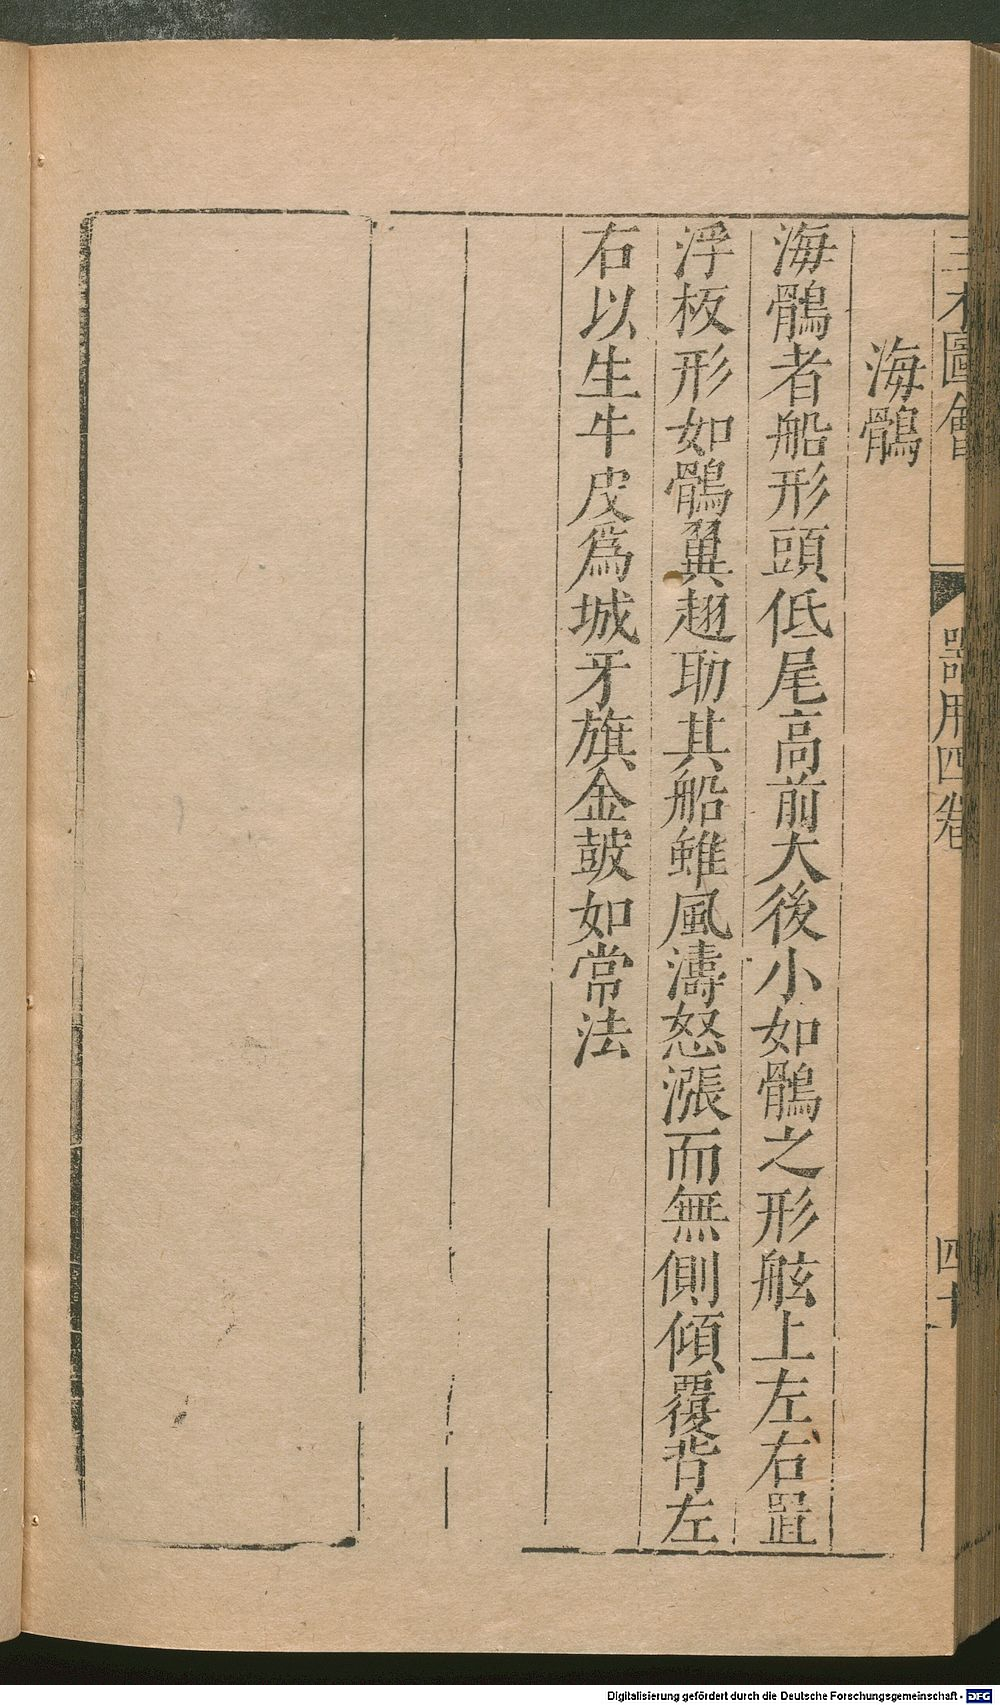 三才圖會 器用四卷 四十
海鶻
海鶻者船形頭低尾高前大後小如鶻之形舷上左右置
浮板形如鶻翼翅助其船雖風濤怒漲而無側傾覆背左
右以生牛皮爲城牙旗金鼓如常法
Digitalisierung gefördert durch die Deutsche Forschungsgemeinschaft - DFG